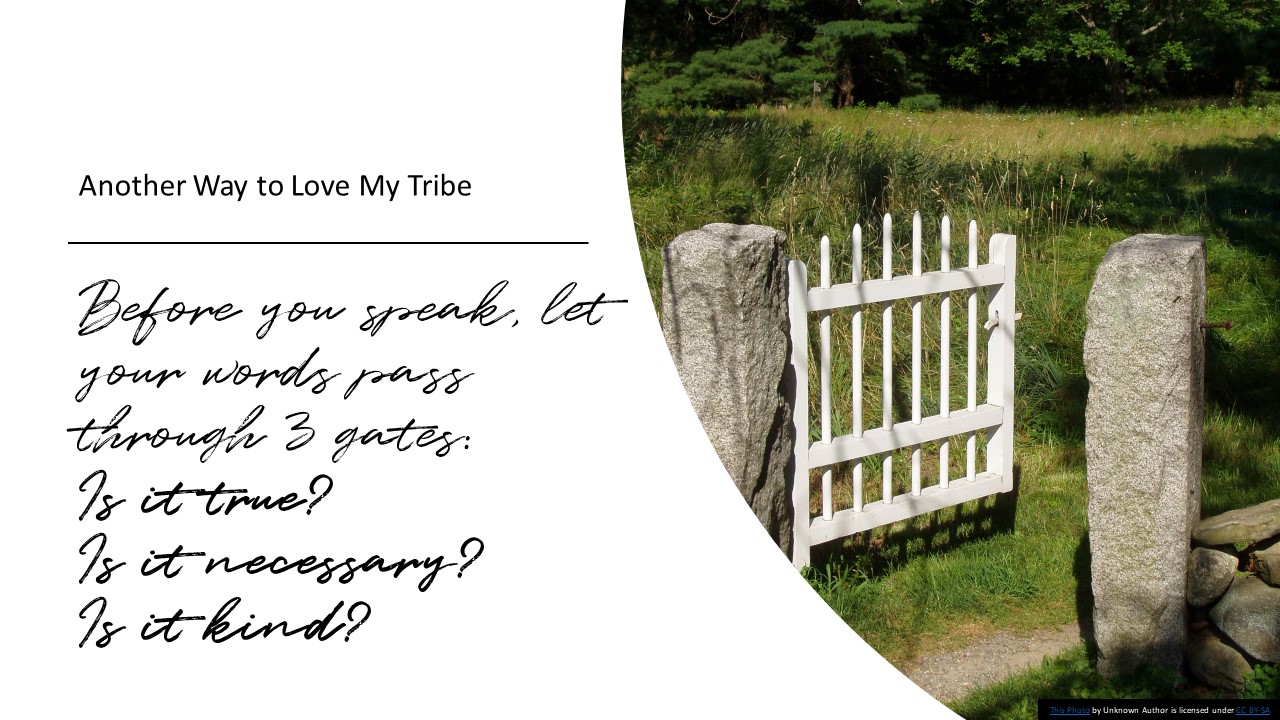 Another Way to Love My Tribe
Before you speak, let
your words pass
through 3 gates:
Is it true?
Is it necessary?
Is it kind?
This Photo by Unknown Author is licensed under CC BY-SA